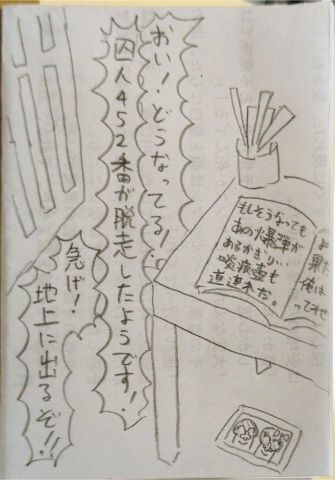 おい!どうなってる!
囚人452番が脱走したようです!
急げ!
地上に出るぞ!!
もしそうなっても
あの爆弾が
あるかぎり、
痰壺も
道連れだ。
よ
俺は
ってせ